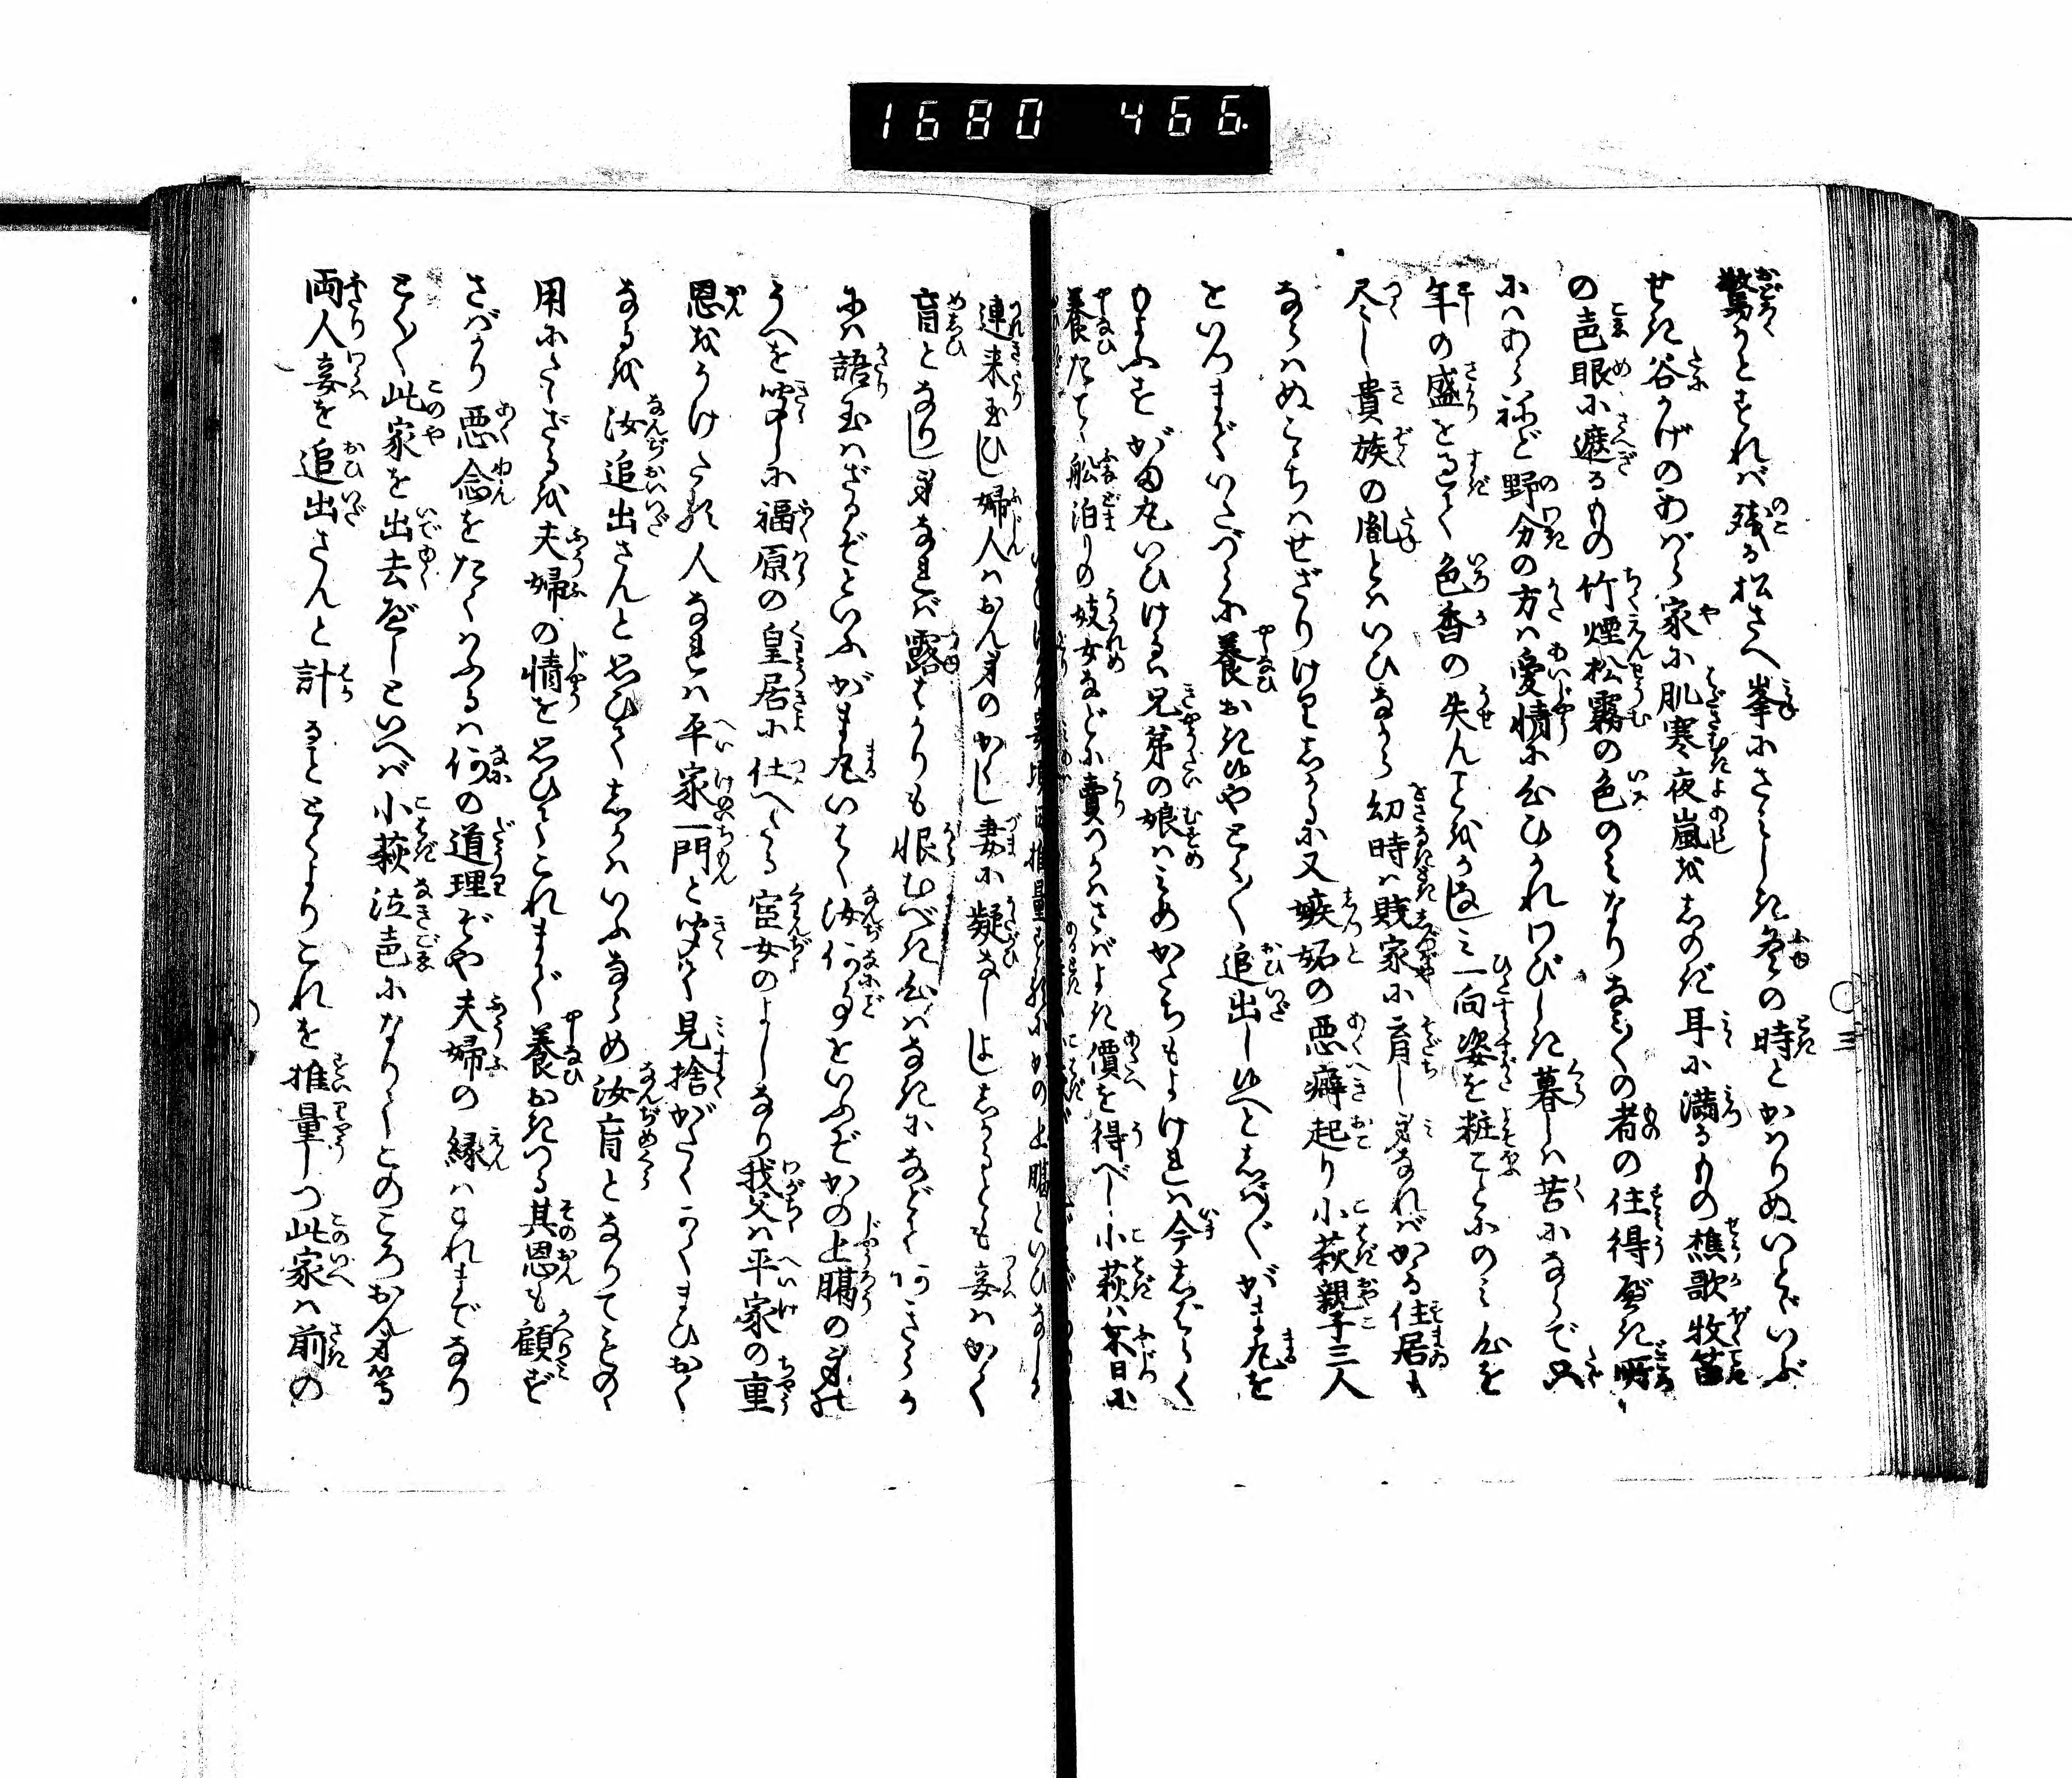 1680 466.
驚かとすれバ残る松さへ峯にさみしき冬の時とかハりぬいとゞいぶ
せき谷かげのあばら家に肌寒夜嵐をしのぎ耳に満るもの樵歌牧笛
の声眼に遮るもの竹煙松霧の色のみなりなみ〳〵の者の住得べき所
にハあらねど野分の方ハ愛情に心ひかれわびしき暮しハ苦にならで只
年の盛を過て色香の失んことをかなしミ一向姿を粧ことにのミ心を
尽し貴族の胤とハいひながら幼時ハ賎家に育し身なれバかゝる住居も
ならハぬこゝちハせざりけりしかるに又嫉妬の悪癖起り小萩親子三人
といつまでいたづらに養おき給ややよく〳〵追出し給へとしバ〳〵がま丸を
もよふすがま丸いひけるハ兄弟の娘ハみめかたちもよけれハ今しばらく
養たてゝ舩泊りの妓女などに賣つかハさバよき價を得べし小萩ハ不日に
連来玉ひし婦人ハおん身のかくし妻に疑なしよししかるとも妾ハかく
盲となりし身なれバ露ばかりも恨むべき心ハなきになどてあきらか
にハ語玉ハざるぞといふがま丸いはく汝何事をいふぞかの上臈の身の
うへを聞しに福原の皇居に仕へたる宦女のよしなり我父ハ平家の重
恩をうけたる人なれハ平家一門と聞て見捨がたくかくまひおく
なるを汝追出さんと思ひてしかハいふならめ汝盲となりてものゝ
用にたゝざるを夫婦の情を思ひてこれまで養おきつる其恩も顧ず
さバかり悪念をたくハふるハ何の道理ぞや夫婦の縁ハこれまでなり
とく〳〵此家を出去べしといへバ小萩泣声になりてこのころおん身等
両人妾を追出さんと計ることとくよりこれを推量しつ此家ハ前の
三